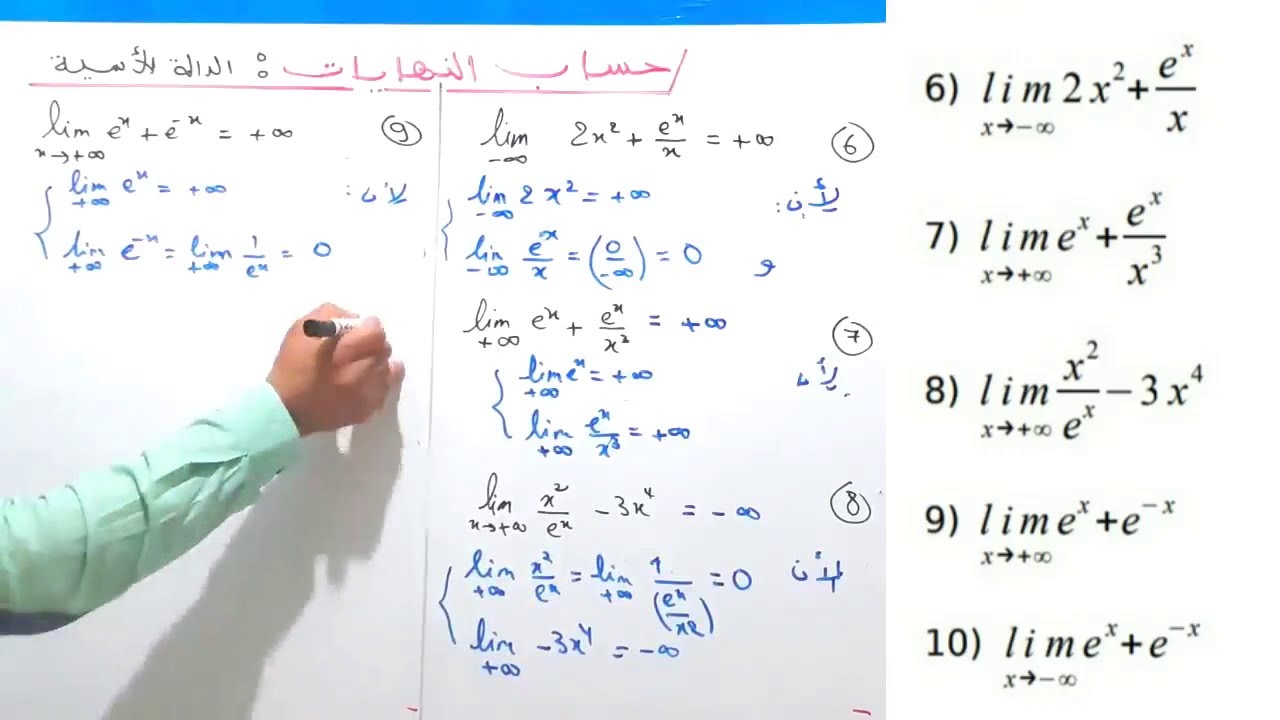 حساب النهايات : الدالة الأسية
lim 2x² + eˣ/x = +∞ ⑥
-∞
لأن :
lim 2x² = +∞
-∞
و lim eˣ/x = (0/-∞) = 0
-∞
lim eˣ + eˣ/x³ = +∞ ⑦
+∞
لأن
lim eˣ = +∞
+∞
lim eˣ/x³ = +∞
+∞
lim x²/eˣ - 3x⁴ = -∞ ⑧
x→+∞
لأن
lim x²/eˣ = lim 1/(eˣ/x²) = 0
+∞ +∞
lim -3x⁴ = -∞
+∞
lim eˣ + e⁻ˣ = +∞ ⑨
x→+∞
لأن :
lim eˣ = +∞
+∞
lim e⁻ˣ = lim 1/eˣ = 0
+∞ +∞
6) lim 2x² + eˣ/x
x→-∞
7) lim eˣ + eˣ/x³
x→+∞
8) lim x²/eˣ - 3x⁴
x→+∞
9) lim eˣ + e⁻ˣ
x→+∞
10) lim eˣ + e⁻ˣ
x→-∞